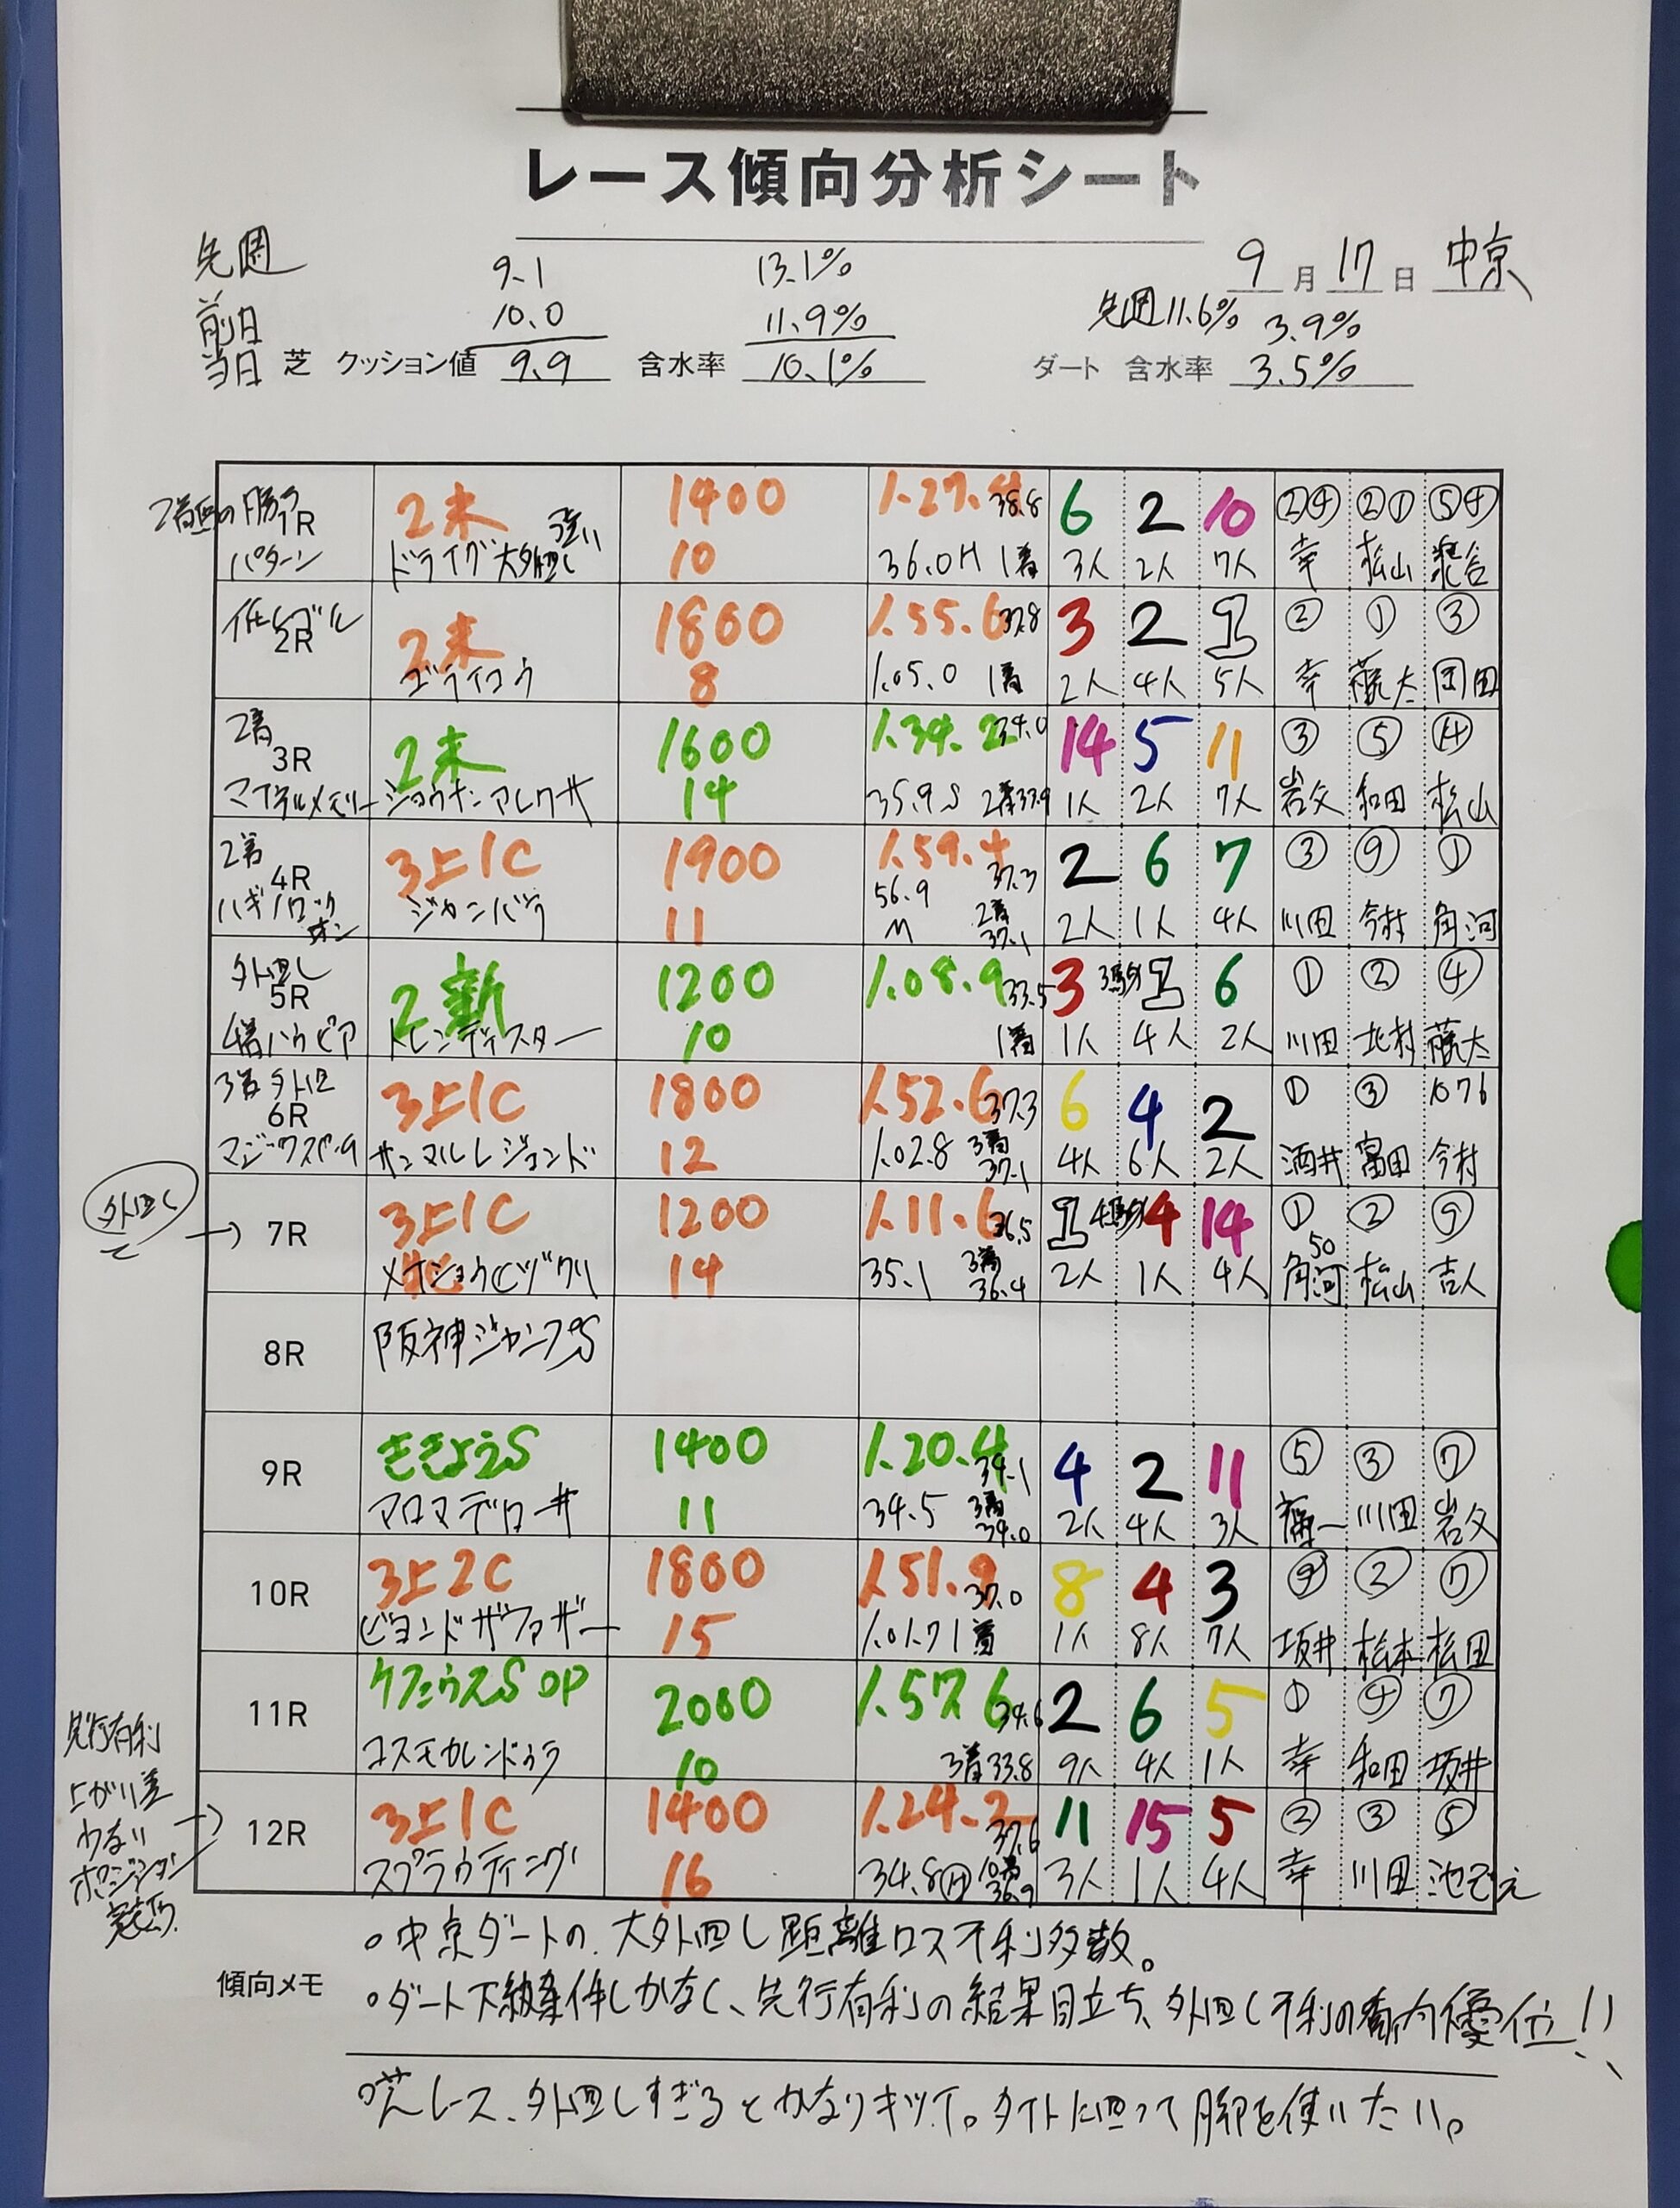 レース傾向分析シート
先週 9.1 13.1% 9月17日 中京
前日 10.0 11.9% 先週11.6% 3.9%
当日 芝 クッション値 9.9 含水率 10.1% ダート 含水率 3.5%
1R 2未 1400 1.27. 38.8 6 2 10 ②④ ②① ⑤④
パターン ドライグ 大外回し 強い 10 36.0H 1着 3人 2人 7人 幸 松山
2R 2未 1800 1.55.6 37.8 3 2 1 ② ① ③
ゴライコウ 8 1.05.0 1着 2人 4人 5人 幸 藤大 団田
2着
3R 2未 1600 1.34.2 34.0 14 5 11 ③ ⑤ ⑭
マイネルメモリー ショウナンアレクサ 14 35.9S 2着33.9 1人 2人 7人 岩父 和田 松山
2着
4R 3上1C 1900 1.59.4 37.3 2 6 7 ③ ⑨ ①
ハギノロックオン ジャンバラ 11 56.9 M 2着 37.1 2人 1人 4人 川田 今村 角河
外回し
5R 2新 1200 1.08.9 33.5 3 3馬身 1 6 ① ② ④
4着ハウピア トレンディスター 10 1着 1人 4人 2人 川田 北村 藤大
3着外回
6R 3上1C 1800 1.52.6 37.3 6 4 2 ① ③ 10 7 6
サンマルレジェンド 12 1.02.8 3着 37.1 4人 6人 2人 酒井 富田 今村
外回し
→ 7R 3上1C 1200 1.11.6 36.5 1 4馬身 4 14 ① ② ⑨
メイショウヒヅクリ 14 35.1 3着 36.4 2人 1人 4人 50 角河 松山 吉人
8R 阪神ジャンプS
9R ききょうS 1400 1.20.4 34.1 4 2 11 ⑤ ③ ⑦
アロマデローサ 11 34.5 3着 34.0 2人 4人 3人 川田 岩父
10R 3上2C 1800 1.51.9 37.0 8 4 3 ② ⑦
ビヨンドザファザー 15 1.01.7 1着 1人 8人 7人 坂井 松本 松田
11R ケフェウスS OP 2000 1.57.6 34.6 2 6 5 ① ④ ⑦
コスモカレンドゥラ 10 3着33.8 9人 4人 1人 幸 和田 坂井
先行有利
上がり差
少ない
ポジション
→ 12R 3上1C 1400 1.24.2 37.6 11 15 5 ② ③ ⑤
スプラウティング 16 34.8 H 10着 36.9 3人 1人 4人 幸 川田 池ぞえ
傾向メモ
○中京ダートの、大外回し距離ロス不利多数。
○ダート下級条件しかなく、先行有利の結果目立ち、外回し不利の為内優位!!
○芝レース、外回しすぎるとかなりキツイ。タイトに回って脚を使いたい。